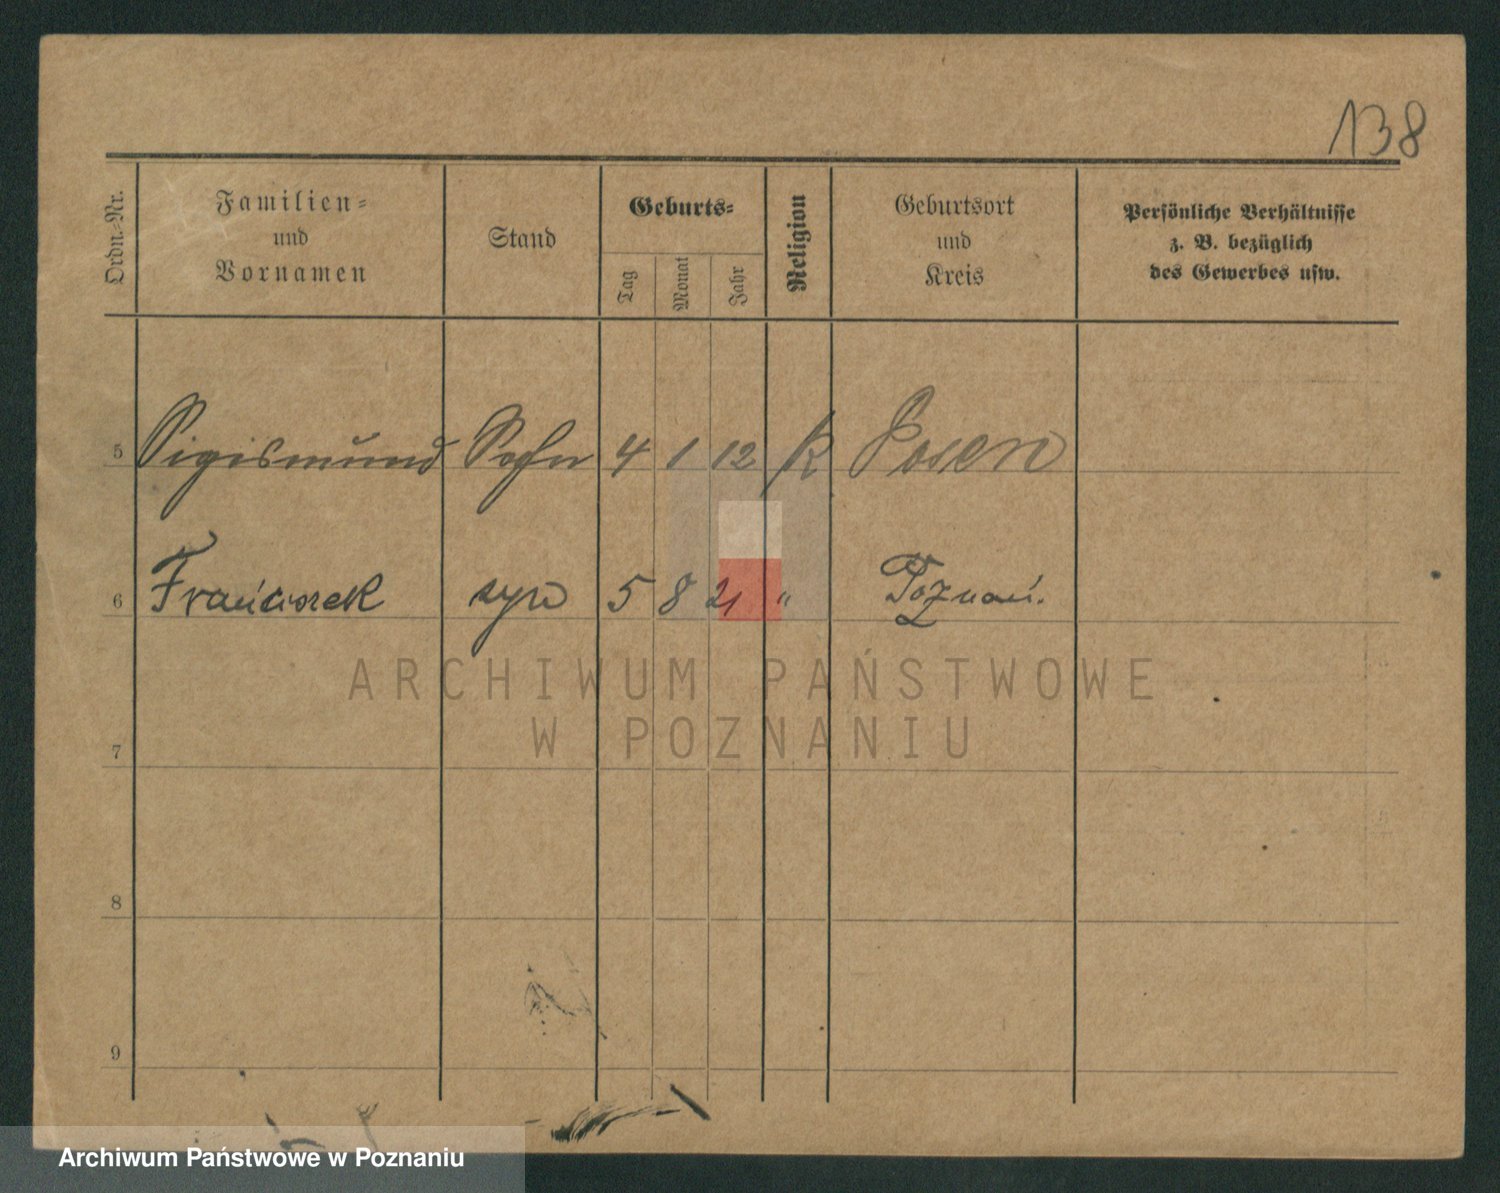 138
Ordn.-Nr.
Familien-
und
Vornamen
Stand
Geburts-
Tag
Monat
Jahr
Religion
Geburtsort
und
Kreis
Persönliche Verhältnisse
z. B. bezüglich
des Gewerbes usw.
5 Sigismund Sohn 4 1 12 K Posen
6 Franciszek syn 5 8 21 " Poznań.
ARCHIWUM PAŃSTWOWE
W POZNANIU
7
8
9
Archiwum Państwowe w Poznaniu